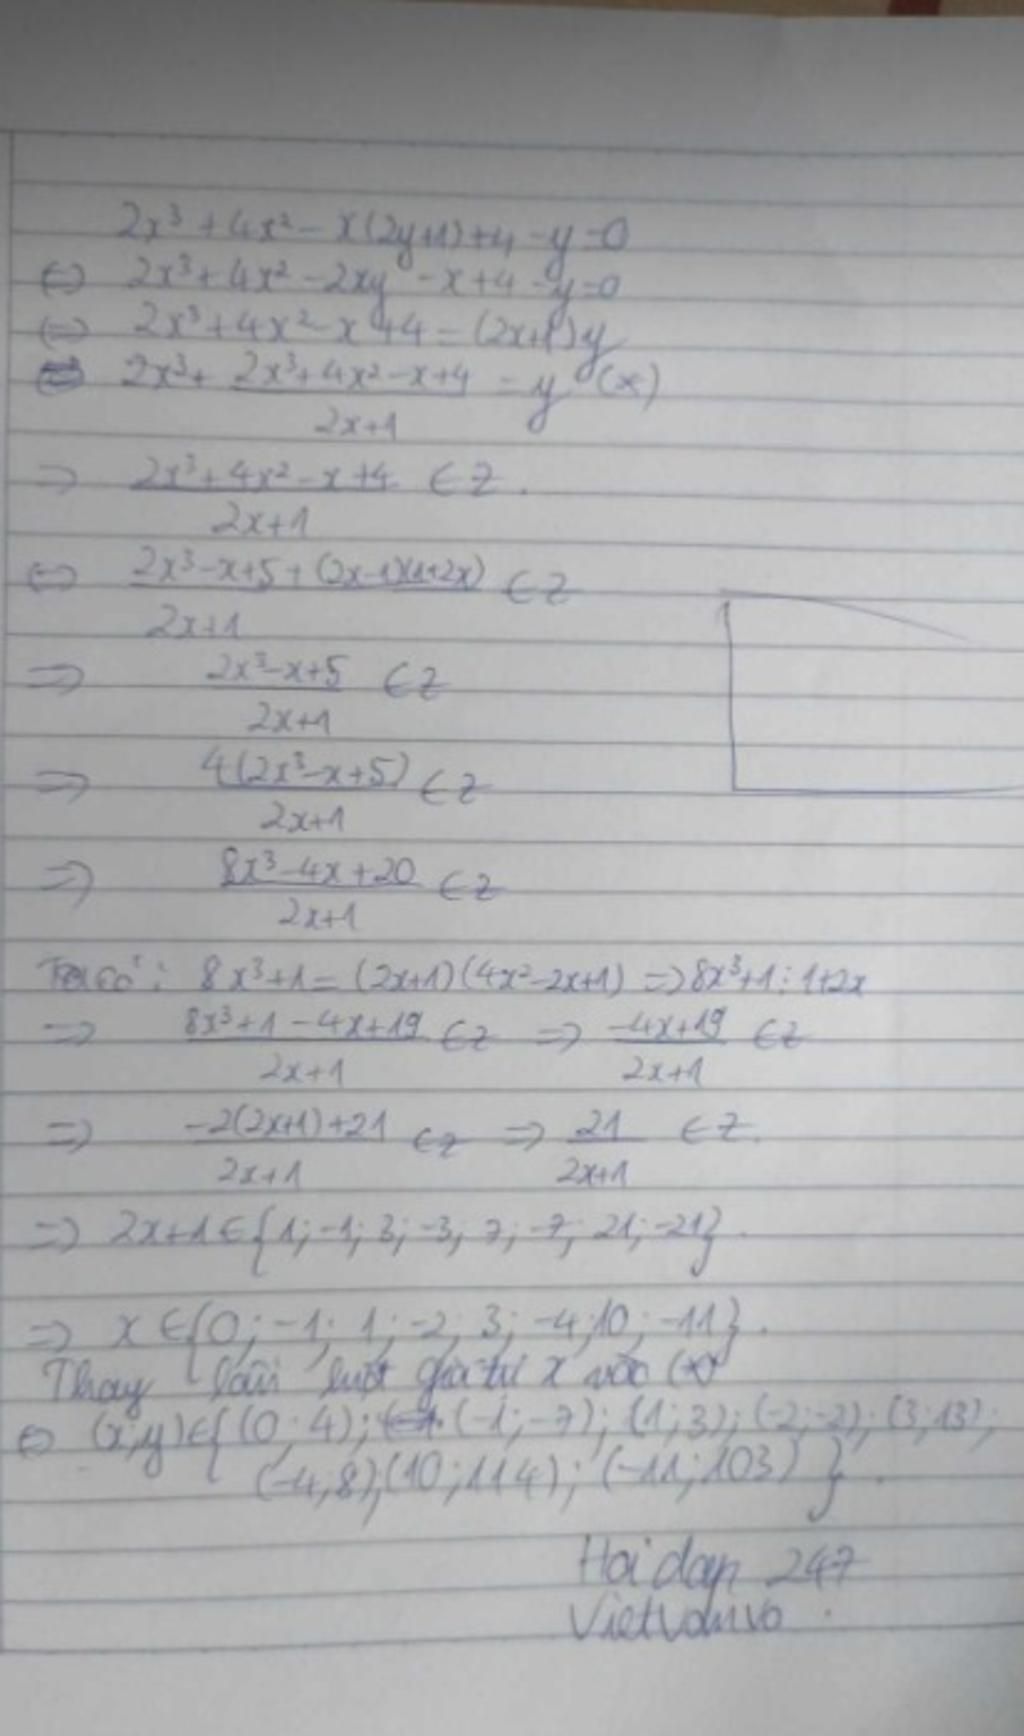 2x³ + 4x² - x(2y+1) + 4 - y = 0
⇔ 2x³ + 4x² - 2xy - x + 4 - y = 0
⇔ 2x³ + 4x² - x + 4 = (2x+1)y
⇔ 2x³ + (2x³ + 4x² - x + 4)/(2x+1) = y (*)
⇒ (2x³ + 4x² - x + 4)/(2x+1) ∈ Z.
⇔ (2x³ - x + 5 + (2x-1)(1+2x))/(2x+1) ∈ Z
⇒ (2x³ - x + 5)/(2x+1) ∈ Z
⇒ 4(2x³ - x + 5)/(2x+1) ∈ Z
⇒ (8x³ - 4x + 20)/(2x+1) ∈ Z
Ta có: 8x³ + 1 = (2x+1)(4x² - 2x + 1) ⇒ 8x³ + 1 ⋮ 1+2x
⇒ (8x³ + 1 - 4x + 19)/(2x+1) ∈ Z ⇒ (-4x + 19)/(2x+1) ∈ Z
⇒ (-2(2x+1) + 21)/(2x+1) ∈ Z ⇒ 21/(2x+1) ∈ Z.
⇒ 2x+1 ∈ {1; -1; 3; -3; 7; -7; 21; -21}.
⇒ x ∈ {0; -1; 1; -2; 3; -4; 10; -11}.
Thay lần lượt giá trị x vào (*)
⇔ (x;y) ∈ {(0; 4); (-1; -7); (1; 3); (-2; -2); (3; 13);
(-4; 8); (10; 114); (-11; 103)}.
Hoidap 247